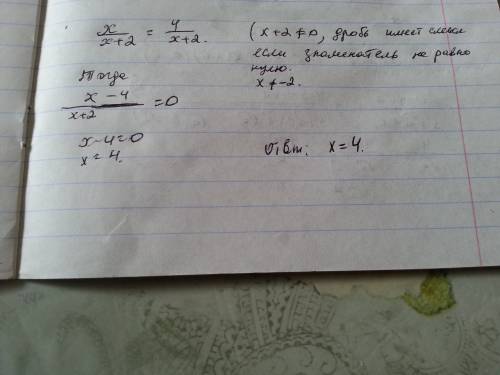 x/x+2 = 4/x+2. (x+2≠0, дробь имеет смысл
если знаменатель не равно
нулю.
x ≠ -2.
Тогда
x-4/x+2 = 0
x-4=0
x=4.
Ответ: x=4.